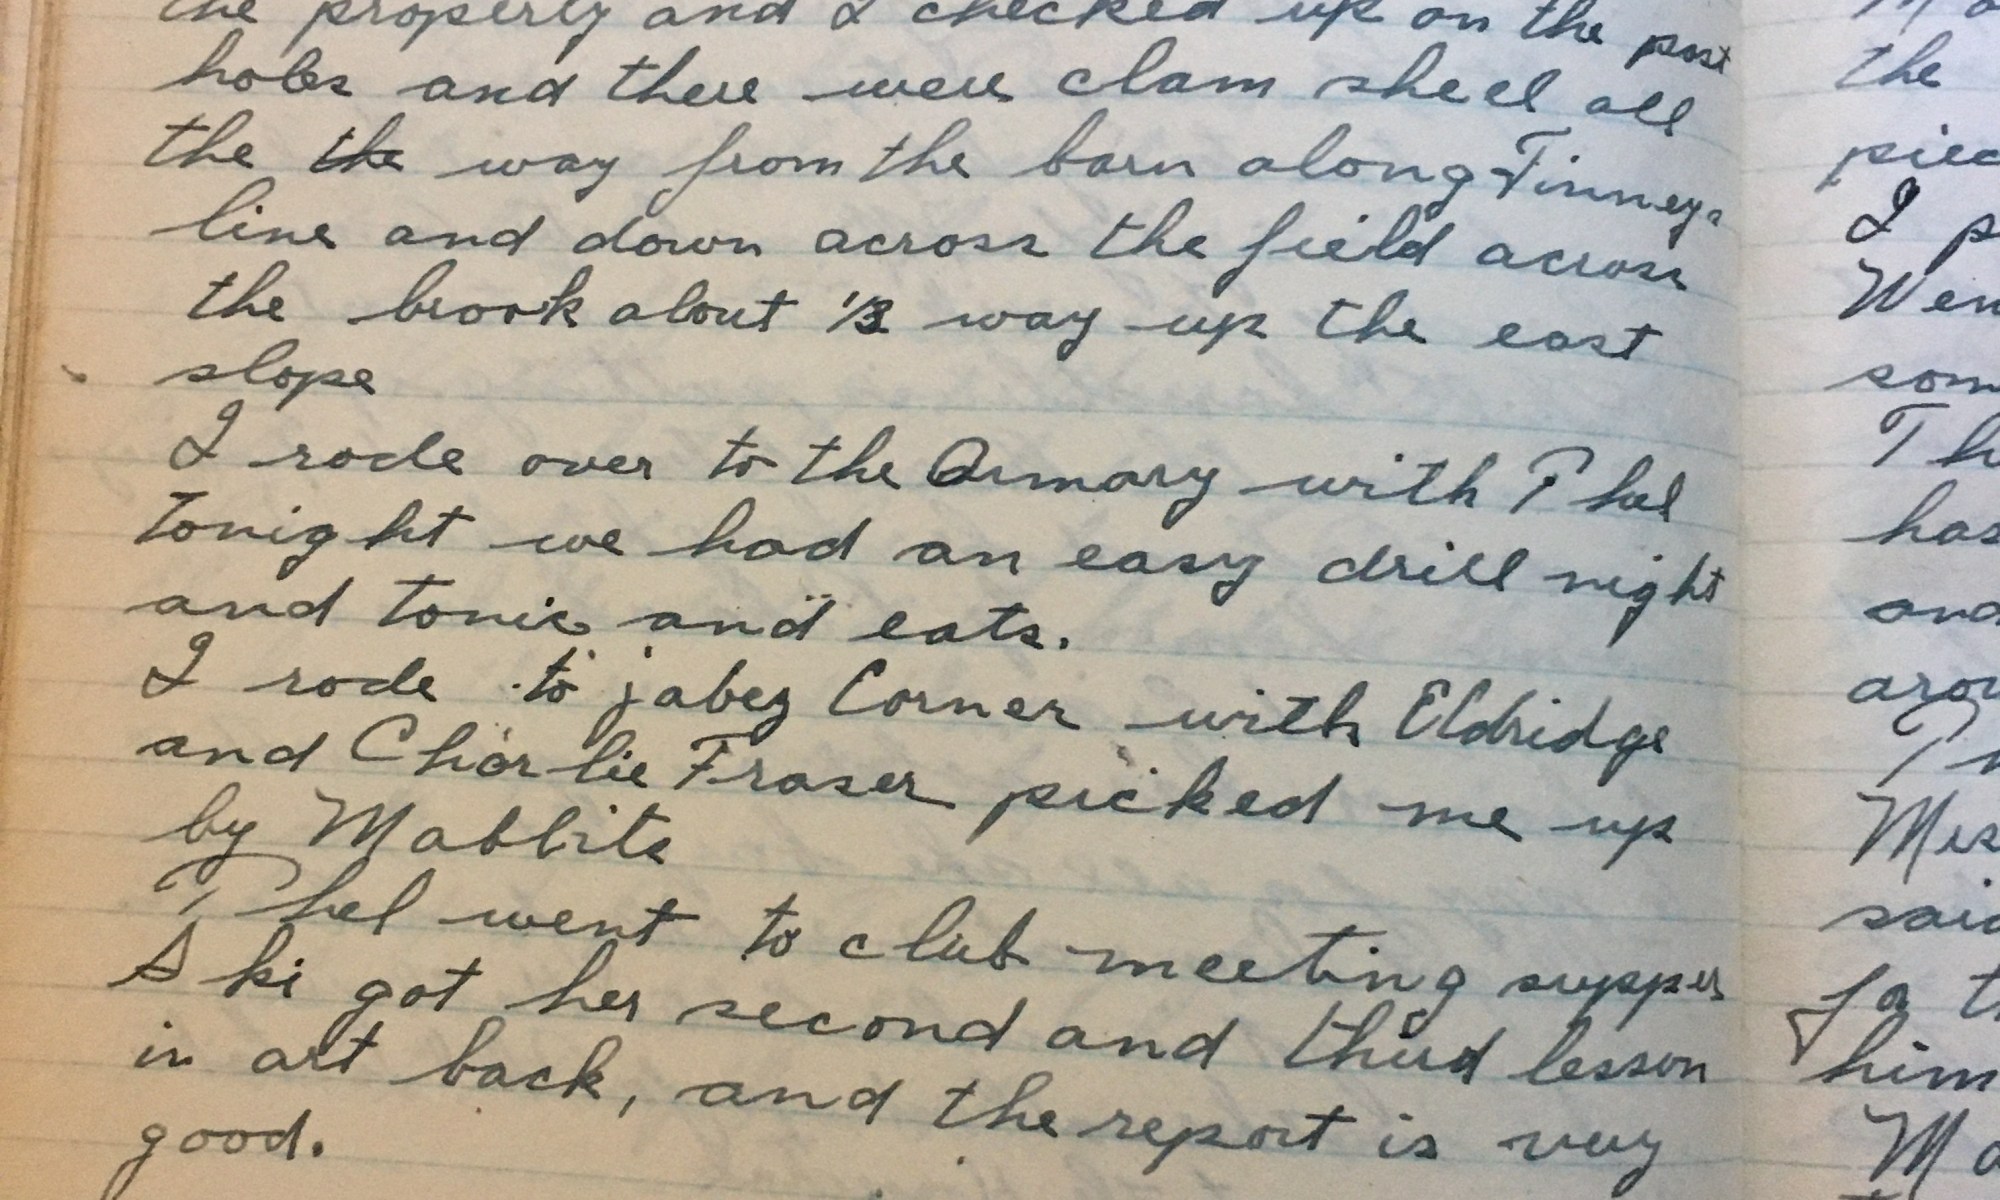 the property and I checked up on the post
holes and there were clam shell all
the the way from the barn along Finneys
line and down across the field across
the brook about 1/3 way up the east
slope
I rode over to the Armory with Phel
tonight we had an easy drill night
and tonic and eats.
I rode to jabez Corner with Eldridge
and Charlie Fraser picked me up
by Mabbits
Phel went to club meeting supper
Ski got her second and third lesson
in art back, and the report is very
good.
the
I
him